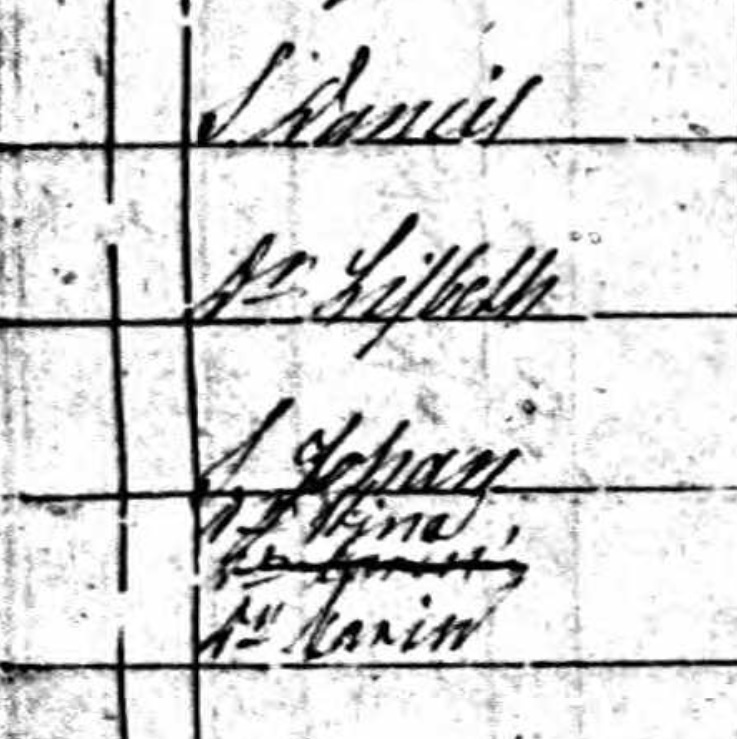 S Daniel
Dr Lisbeth
S Johan
Dr Stina
Dr Karin